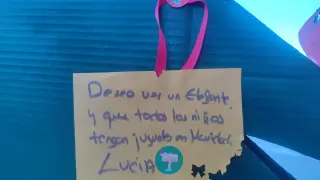 Deseo ver un Elefante
y que todos los niños
tengan juguetes en Navidad.
LUCIA